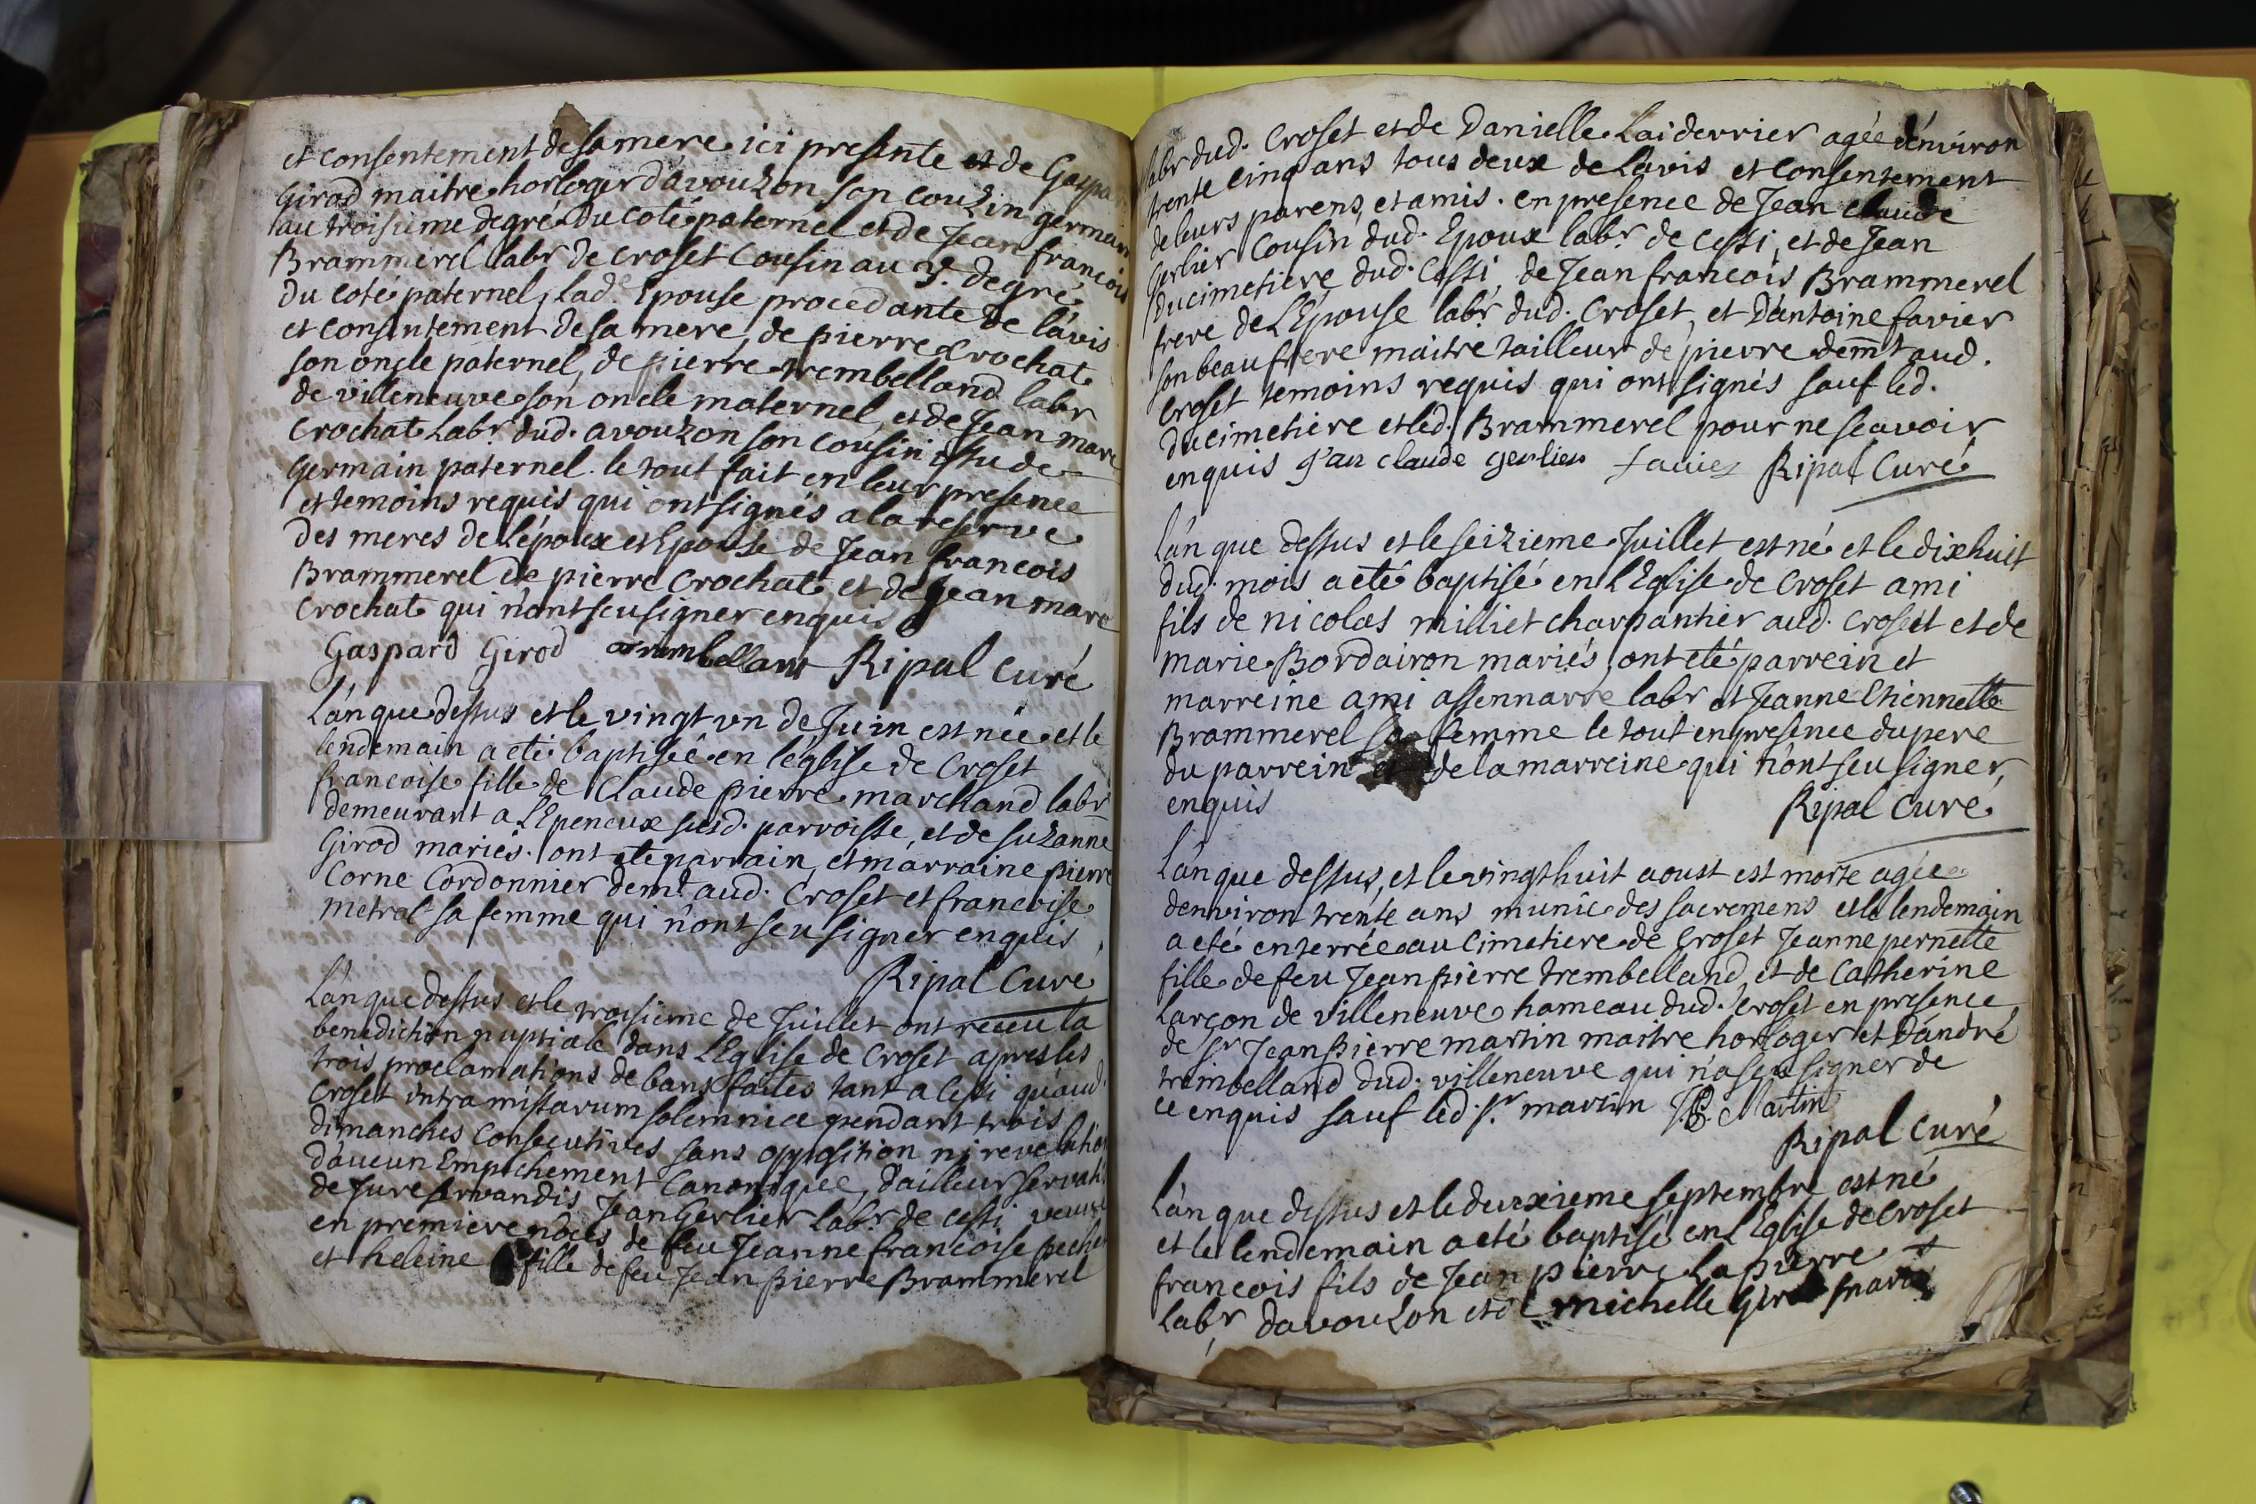 et consentement de sa mere ici presente et de Gaspar
Girod maitre horloger d'avouzon son couzin germain
au troisieme degré du coté paternel et de Jean francois
Brammerel labr de croset cousin au 3e. degré
du coté paternel, lad.e Epouse procedante de l'avis
et consentement de sa mere, de pierre Crochat
son oncle paternel, de pierre trembelland labr
de villeneuve son oncle maternel, et de Jean marc
Crochat Labr. dud. avouzon son cousin issu de
germain paternel. le tout fait en leur presence
et temoins requis qui ont signés a la reserve
des meres de l'époux et Epouse de Jean francois
Brammerel de pierre Crochat et de Jean marc
Crochat qui n'ont sceu signer enquis
Gaspard Girod trembellant Ripal Curé
L'an que dessus et le vingt vn de Juin est née et le
lendemain a eté baptisée en l'église de Croset
francoise fille de Claude pierre marchand labr
demeurant a l'Epeneux susd. parroisse, et de suzanne
Girod mariés. ont eté parrain, et marraine pierre
Corne Cordonnier demt. aud. Croset et francoise
metral sa femme qui n'ont seu signer enquis
Ripal Curé
L'an que dessus et le troisieme de Juillet ont receu la
benediction nuptiale dans l'Eglise de Croset apres les
trois proclamations de bans faites tant a Cessi qu'aud.
Croset intra missarum solemnia pendant trois
dimanches consecutives sans opposition ni revelation
d'aucun Empechement Canonique, d'ailleur servatis
de Jure servandis Jean Gerlier Labr. de cessi veuf
en premiere noces de feu Jeanne francoise pecher
et heleine fille de feu Jean pierre Brammerel
labr dud. Croset et de Danielle Laiderrier agée d'environ
trente cinq ans tous deux de l'avis et consentement
de leurs parens, et amis. en presence de Jean claude
Gerlier Cousin dud. Epoux labr. de cessi, et de Jean
ducimetiere dud. Cessi, de Jean francois Brammerel
frere de l'Epouse labr. dud. Croset, et D'antoine favier
son beau frere maitre tailleur de pierre demt. aud.
Croset temoins requis qui ont signés sauf led.
ducimetiere et led. Brammerel pour ne scavoir
enquis j'an claude gerlier favier Ripal Curé
L'an que dessus et le seizieme Juillet est né et le dixhuit
dud. mois a eté baptisé en l'Eglise de Croset ami
fils de nicolas milliet charpantier aud. croset et de
marie Bordairon mariés, ont eté parrein et
marreine ami assennarre labr et Jeanne Etiennette
Brammerel sa femme le tout en presence du pere
du parrein et de la marreine qui n'ont seu signer,
enquis
Ripal Curé
L'an que dessus, et le vingthuit aoust est morte agée
d'environ trente ans munie des sacremens et le lendemain
a eté enterrée au Cimetiere de Croset Jeanne pernette
fille de feu Jean pierre trembelland, et de Catherine
Larçon de villeneuve hameau dud. Croset en presence
de sr. Jean pierre martin maitre horloger et D'andré
trembelland dud. villeneuve qui n'a seu signer de
ce enquis sauf led. sr. martin JP Martin
Ripal Curé
L'an que dessus et le deuxieme septembre est né
et le lendemain a eté baptisé en l'Eglise de Croset
francois fils de Jean pierre Lapierre
Labr. d'avouzon et de michelle Girod